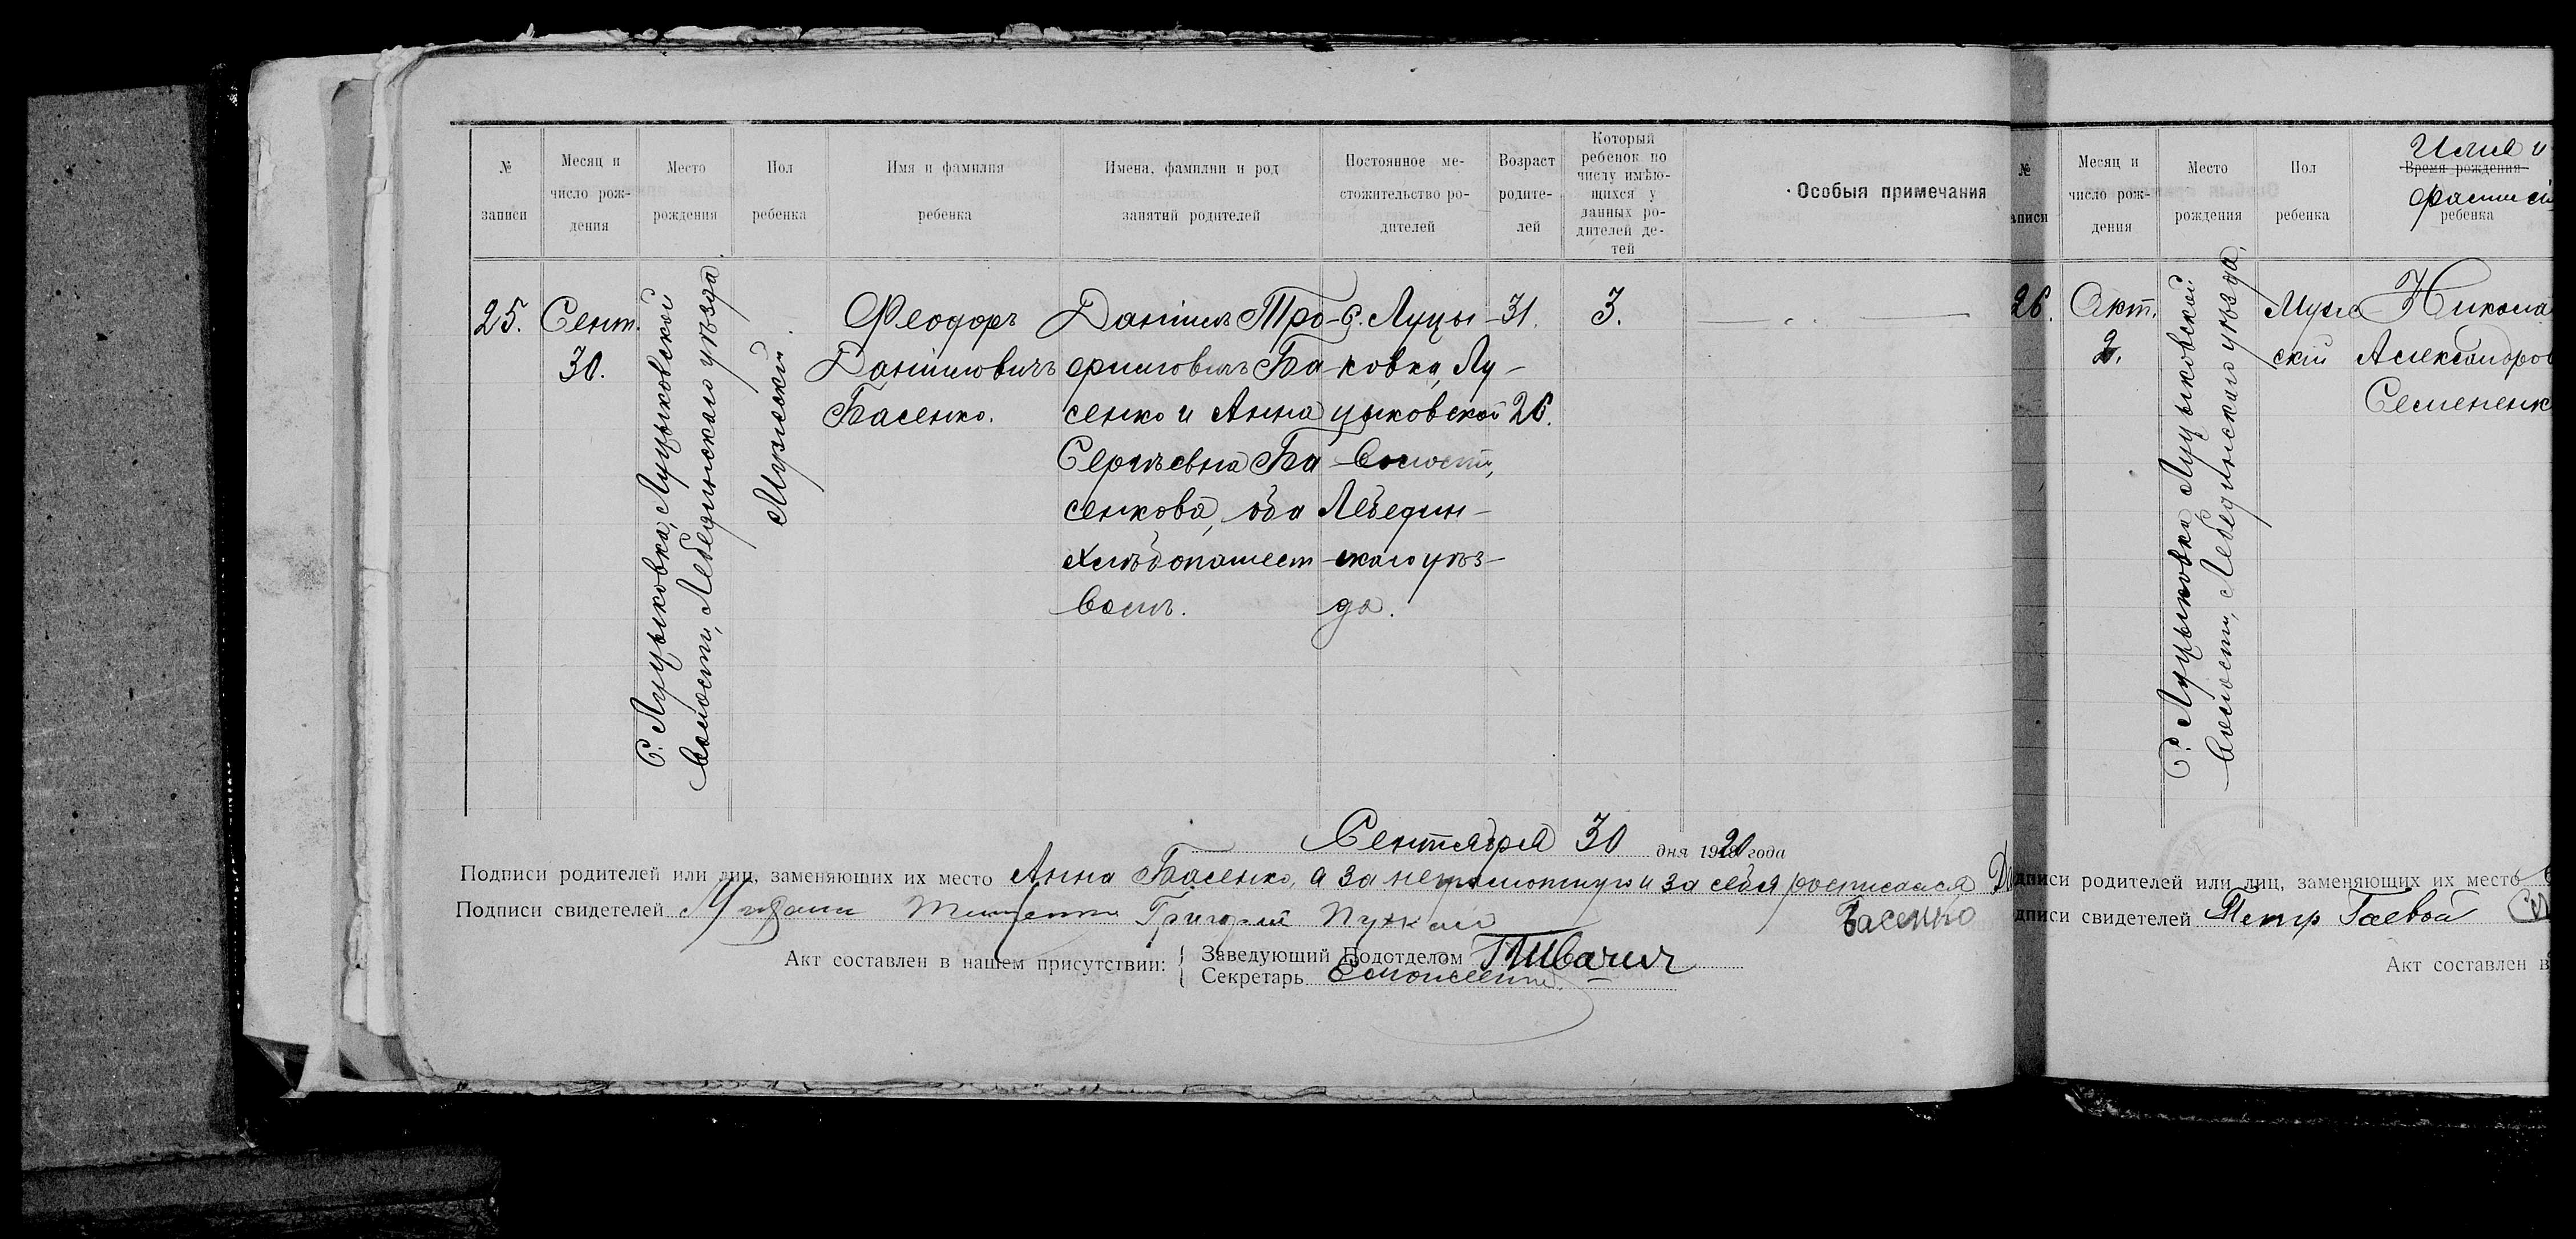 № записи
Месяц и число рождения
Место рождения
Пол ребенка
Имя и фамилия ребенка
Имена, фамилии и род занятий родителей
Постоянное местожительство родителей
Возраст родителей
Который ребенок по числу имѣющихся у данных родителей детей
Особыя примечания
25.
Сент.
30.
С. Луцыковка, Луцыковской
волости, Лебединскаго уѣзда
Мужской
Феодоръ
Даніиловичъ
Басенко.
Даніилъ Тро-
фимовичъ Ба
сенко и Анна
Сергѣевна Ба
сенкова, оба
хлѣбопашест
вомъ.
С. Луцы-
ковка, Лу-
цыковской
волости,
Лебедин-
скаго уѣз-
да.
31.
26.
3.
Сентября 30 дня 1920 года
Подписи родителей или лиц, заменяющих их место Анна Басенко, а за неграмотную и за себя росписался
Басенко
Подписи свидетелей Григорий
Акт составлен в нашем присутствии:
Заведующий Подотделом
Секретарь
№
аписи
Месяц и число рождения
Место рождения
Пол ребенка
Имя и
Время рождения
фамилі
ребенка
26.
Окт.
2.
С. Луцыковка Луцыковской
волости, Лебединскаго уѣзда.
Муж
ской
Никола
Александров
Семененк
дписи родителей или лиц, заменяющих их место
дписи свидетелей Петр Гаевой
Акт составлен в